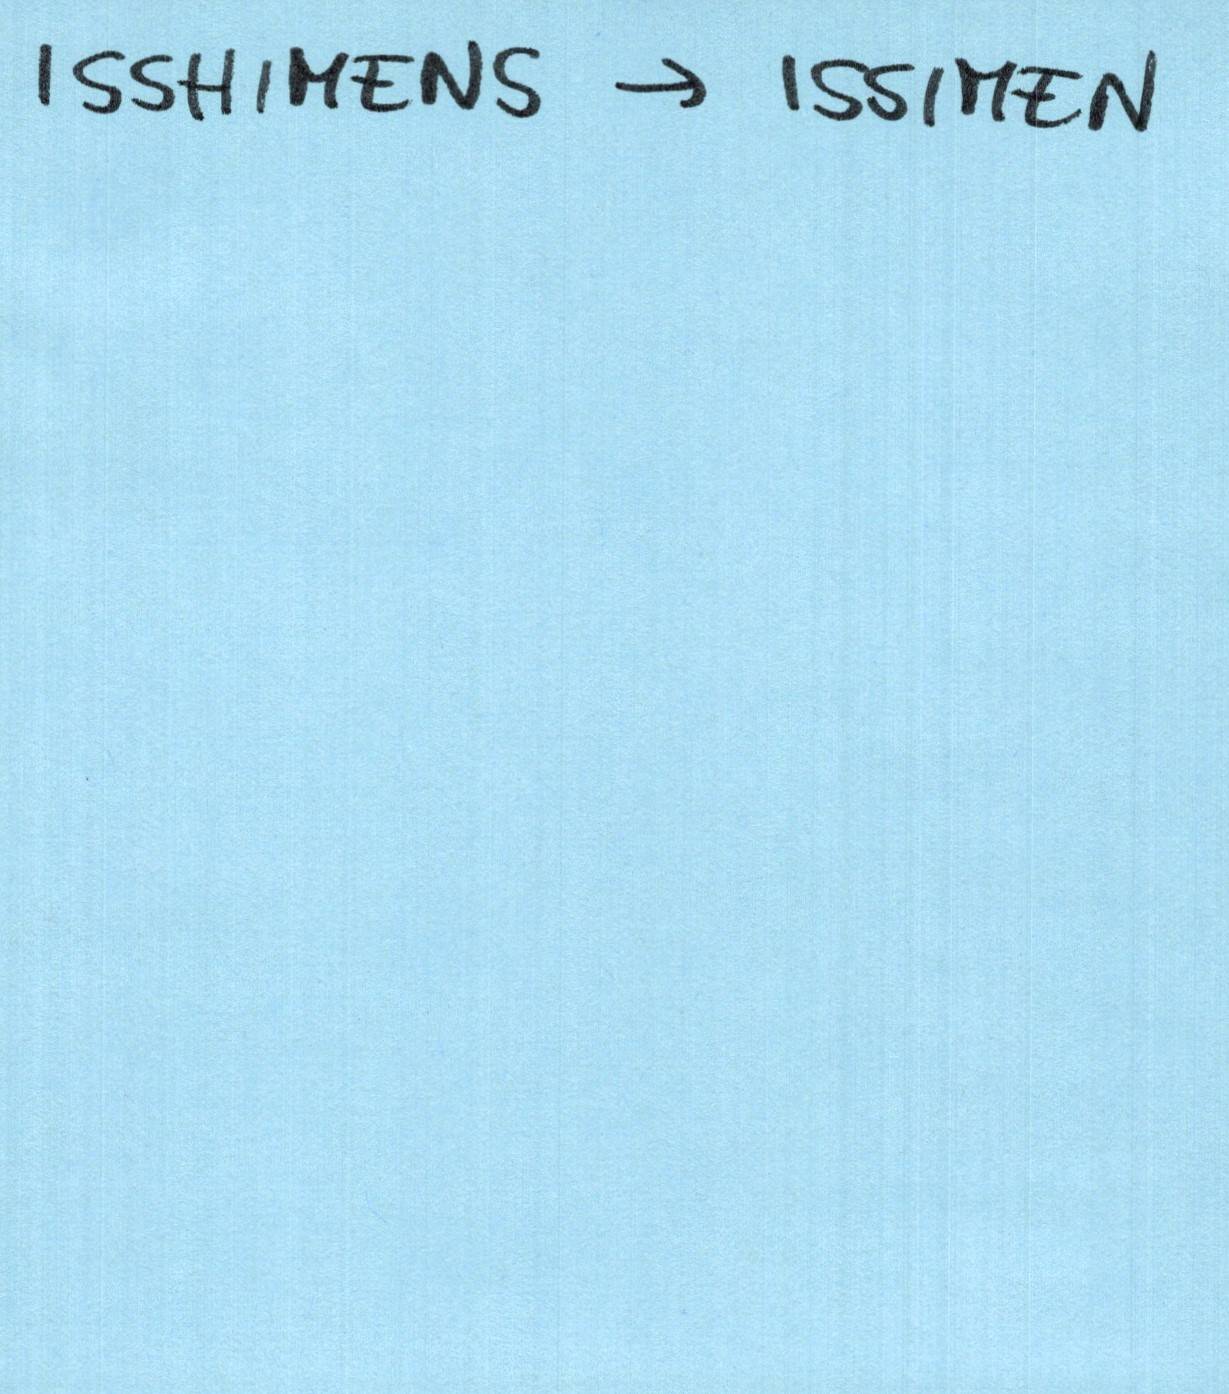 ISSHIMENS → ISSIMEN